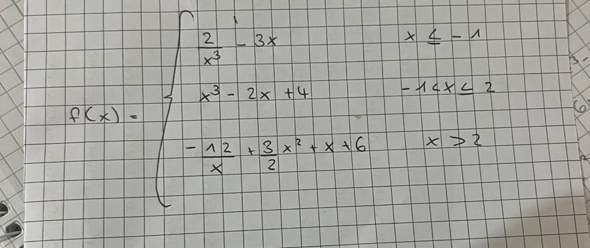 2/x³ - 3x    x ≤ -1
f(x) = { x³ - 2x + 4    -1 < x ≤ 2
-12/x + 3/2 x² + x + 6    x > 2